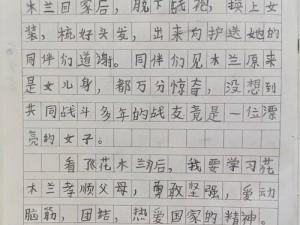 木兰回家后，脱下战袍，换上女
装，梳好头发，出来向护送她的
同伴们道谢。同伴们见木兰原来
是女儿身，都万分惊奇，没想到
共同战斗多年的战友竟是一位漂
亮的女子。
看了花木兰后，我要学习花
木兰孝顺父母，勇敢坚强，爱动
脑筋，团结，热爱国家的精神。